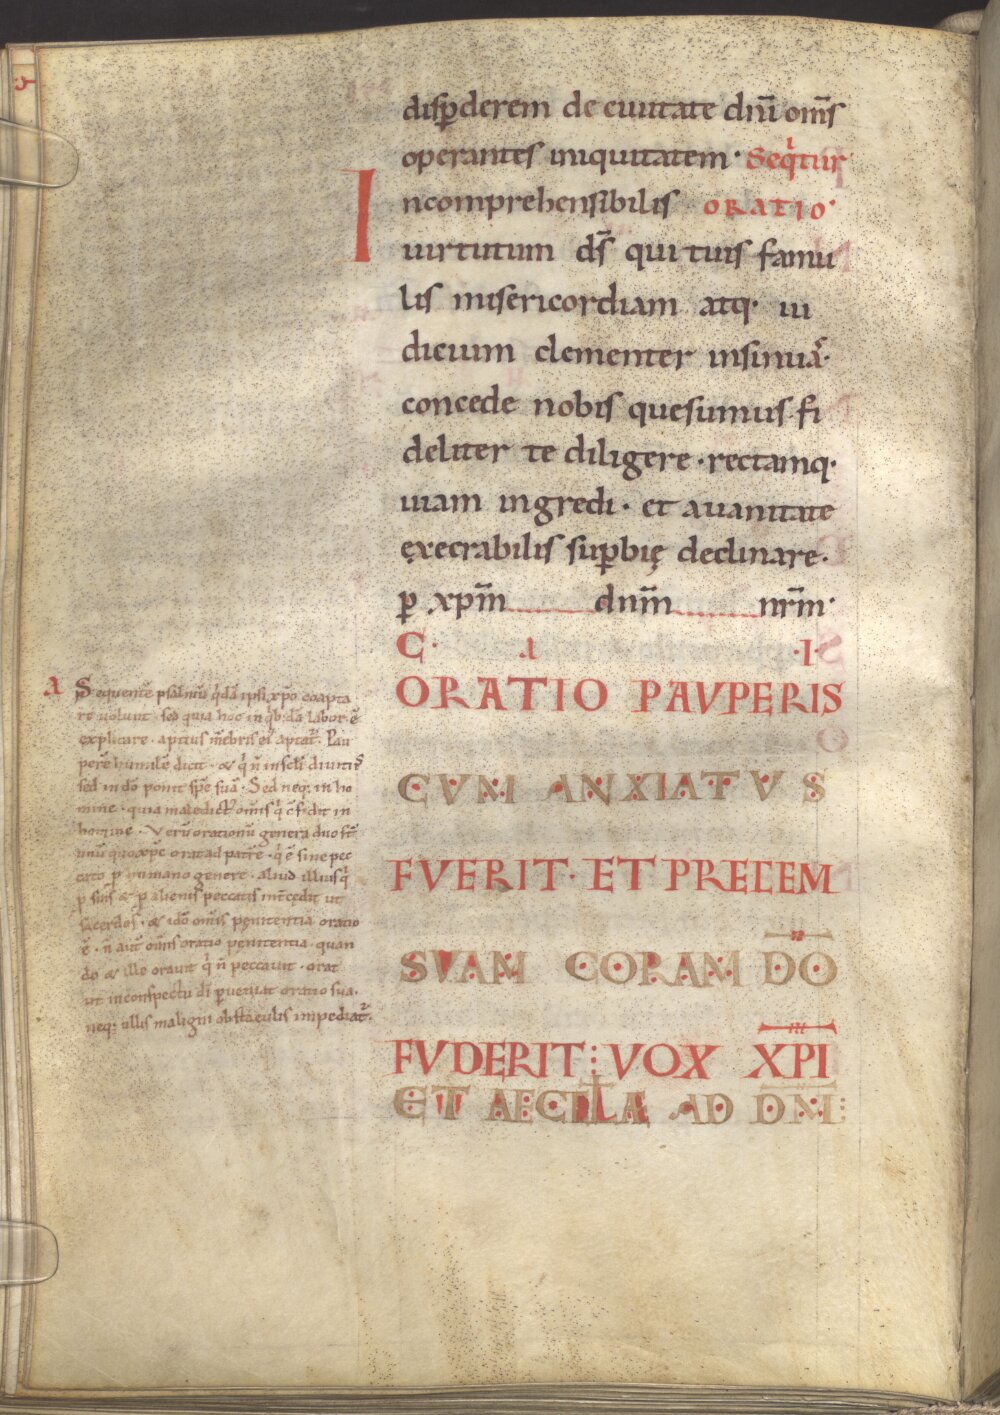 disꝑderem de ciuitate dn̄i om̄s
operantes iniquitatem· Seq̇tur
Incomprehensibilis ORATIO·
uirtutum ds̄ qui tuis famu
lis misericordiam atq· iu
dicium clementer insinuas·
concede nobis quesumus fi
deliter te diligere · rectamq·
uiam ingredi · et auanitate
ęxecrabilis suꝑbię declinare·
ꝑ xp̄m dn̄m nr̄m·
C· A ·I·
ORATIO PAVPERIS
CVM ANXIATVS
FVERIT· ET PRECEM
SVAM CORAM DO
FVDERIT: VOX XPI
ET AECLA AD DM:
A Sequentē psalmū q̇dā ipsi xp̄o coapta
re uolunt · sed quia hoc in q̇b;dā labor· ē
explicare · aptius m̄bris ei᾽ aptat᷑· Pau
perē humilē dicit · & q̇ n̄ in sc̄li diuitiis
sed in dō ponit spē suā · Sed neq; in ho
mine · quia maledict᾽ om̄is q̇ c̄fidit in
homine · Verū orationū genera duo st̄
unū quo xp̄c orat ad patrē · q̇ ē sine pec
cato ꝑ humano genere · aliud illius q̇
ꝑ suis & ꝑ alienis peccatis int̄cedit ut
sacerdos · & idō om̄is pęnitentia oratio
ē · n̄ aut̄ om̄is oratio penitentia · quan
do & ille orauit q̇ n̄ peccauit · orat
ut in conspectu dī ꝑueniat oratio sua·
neq; ullis maligni obstaculis impediat᷑·